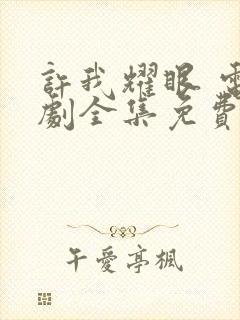 許我耀眼 電
劇全集免費
午愛亭楓